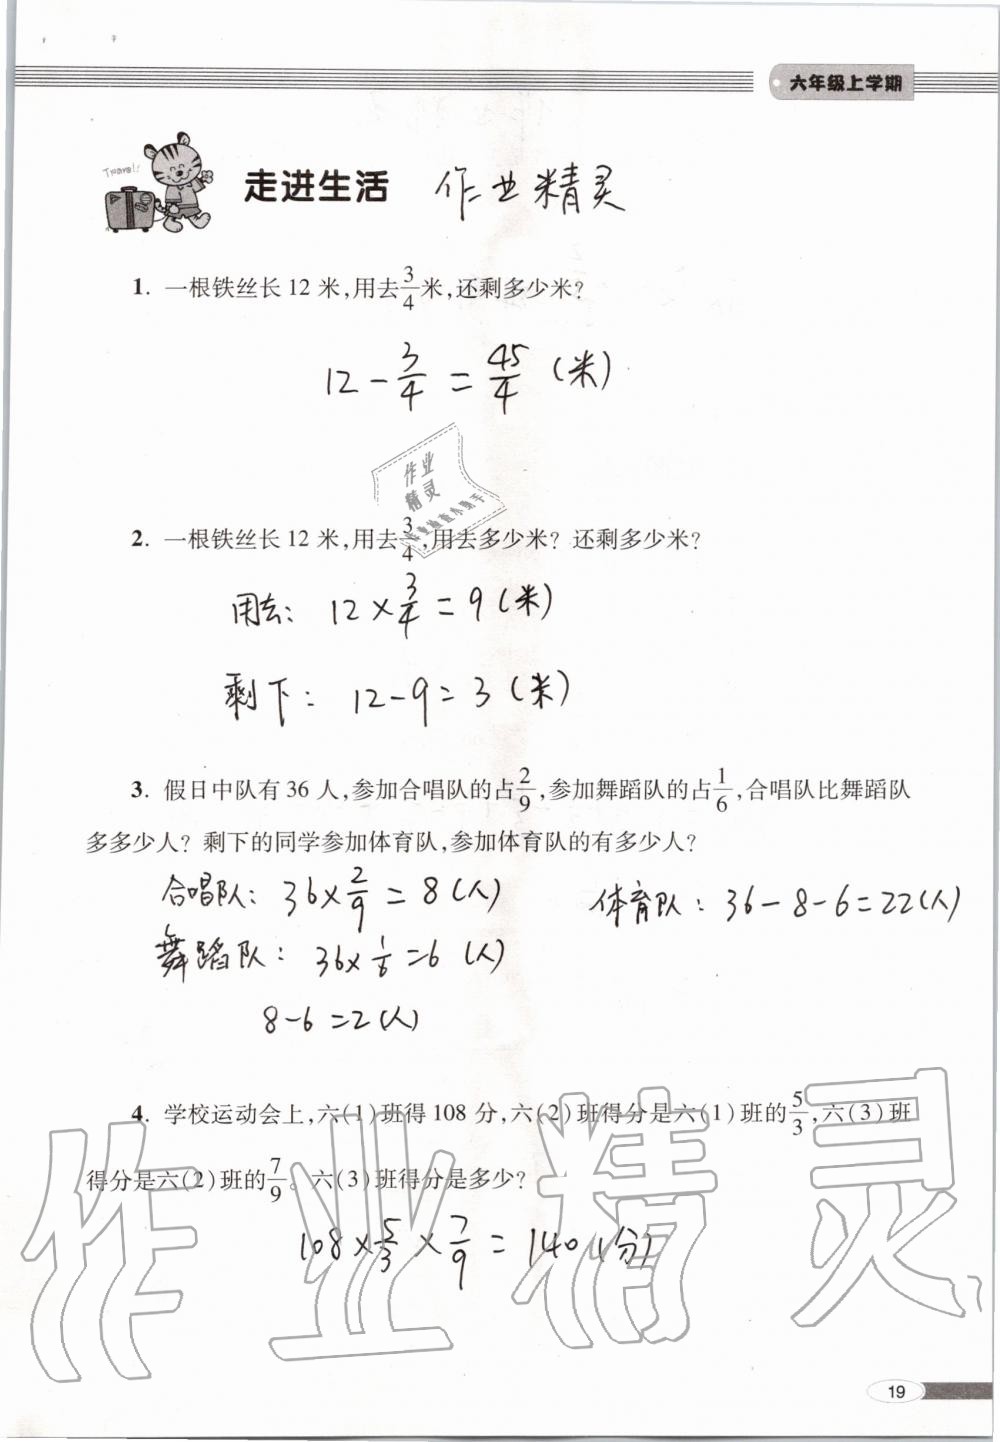 六年级上学期
Travel!
走进生活 作业精灵
1. 一根铁丝长 12 米,用去3/4米,还剩多少米?
12 - 3/4 = 45/4 (米)
作业
精灵
2. 一根铁丝长 12 米,用去3/4,用去多少米? 还剩多少米?
用去: 12 × 3/4 = 9 (米)
剩下: 12 - 9 = 3 (米)
3. 假日中队有 36 人,参加合唱队的占2/9,参加舞蹈队的占1/6,合唱队比舞蹈队
多多少人? 剩下的同学参加体育队,参加体育队的有多少人?
合唱队: 36 × 2/9 = 8 (人)
舞蹈队: 36 × 1/6 = 6 (人)
8 - 6 = 2 (人)
体育队: 36 - 8 - 6 = 22 (人)
4. 学校运动会上,六(1)班得 108 分,六(2)班得分是六(1)班的5/3,六(3)班
得分是六(2)班的7/9。六(3)班得分是多少?
108 × 5/3 × 7/9 = 140 (分)
作业精灵
19